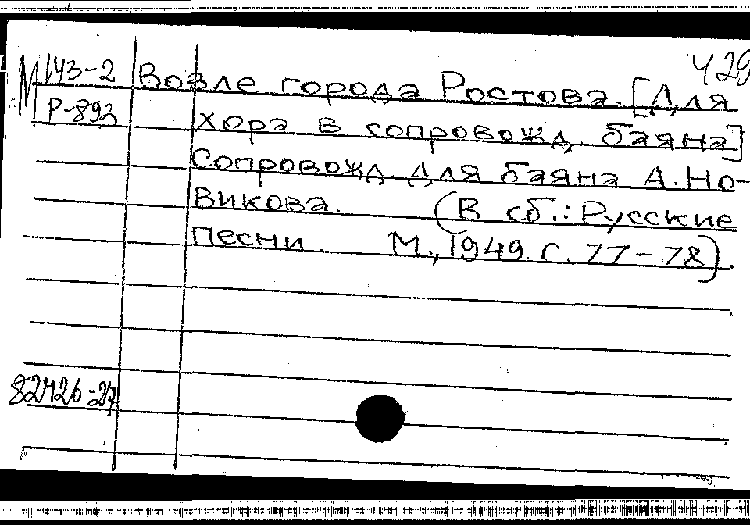 429
М143-2 Возле города Ростова. [Для
Р-893 хора в сопровожд. баяна]
Сопровожд. для баяна А. Но-
викова. (В сб.: Русские
песни. М., 1949. с. 77-78)
82426-27